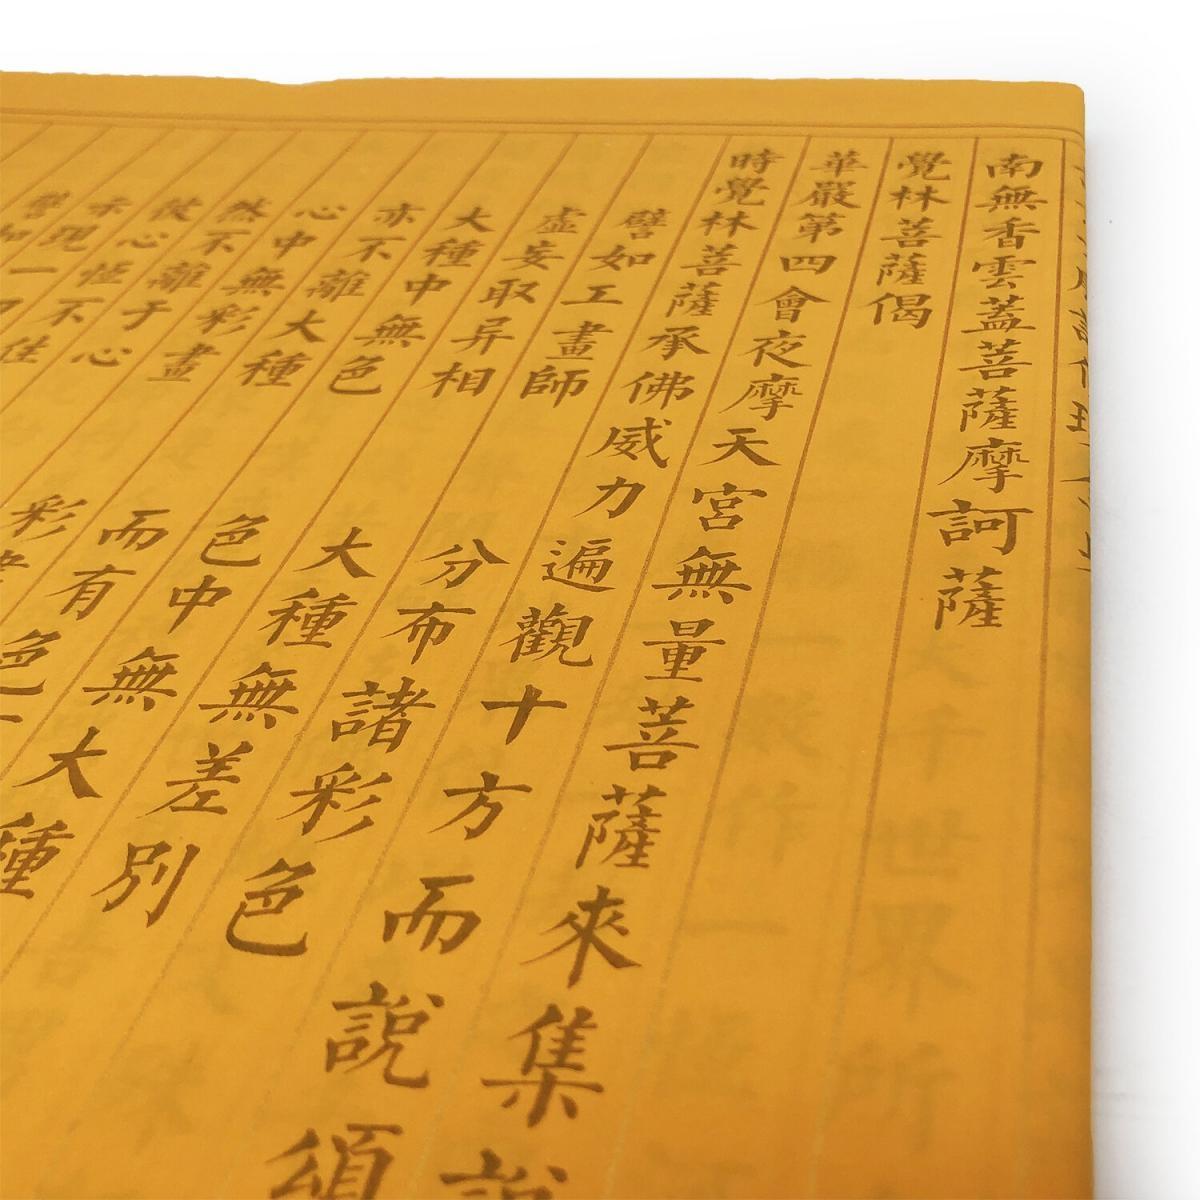 南無香雲蓋菩薩摩訶薩
覺林菩薩偈
華嚴第四會夜摩天宮無量菩薩來集說
時覺林菩薩承佛威力遍觀十方而說頌
譬如工畫師 分布諸彩色
虛妄取异相 大種無差別
大種中無色 色中無大種
亦不離大種 而有色
心中無彩畫 彩畫
然不離于心
彼心恒不住
示現一
譬如